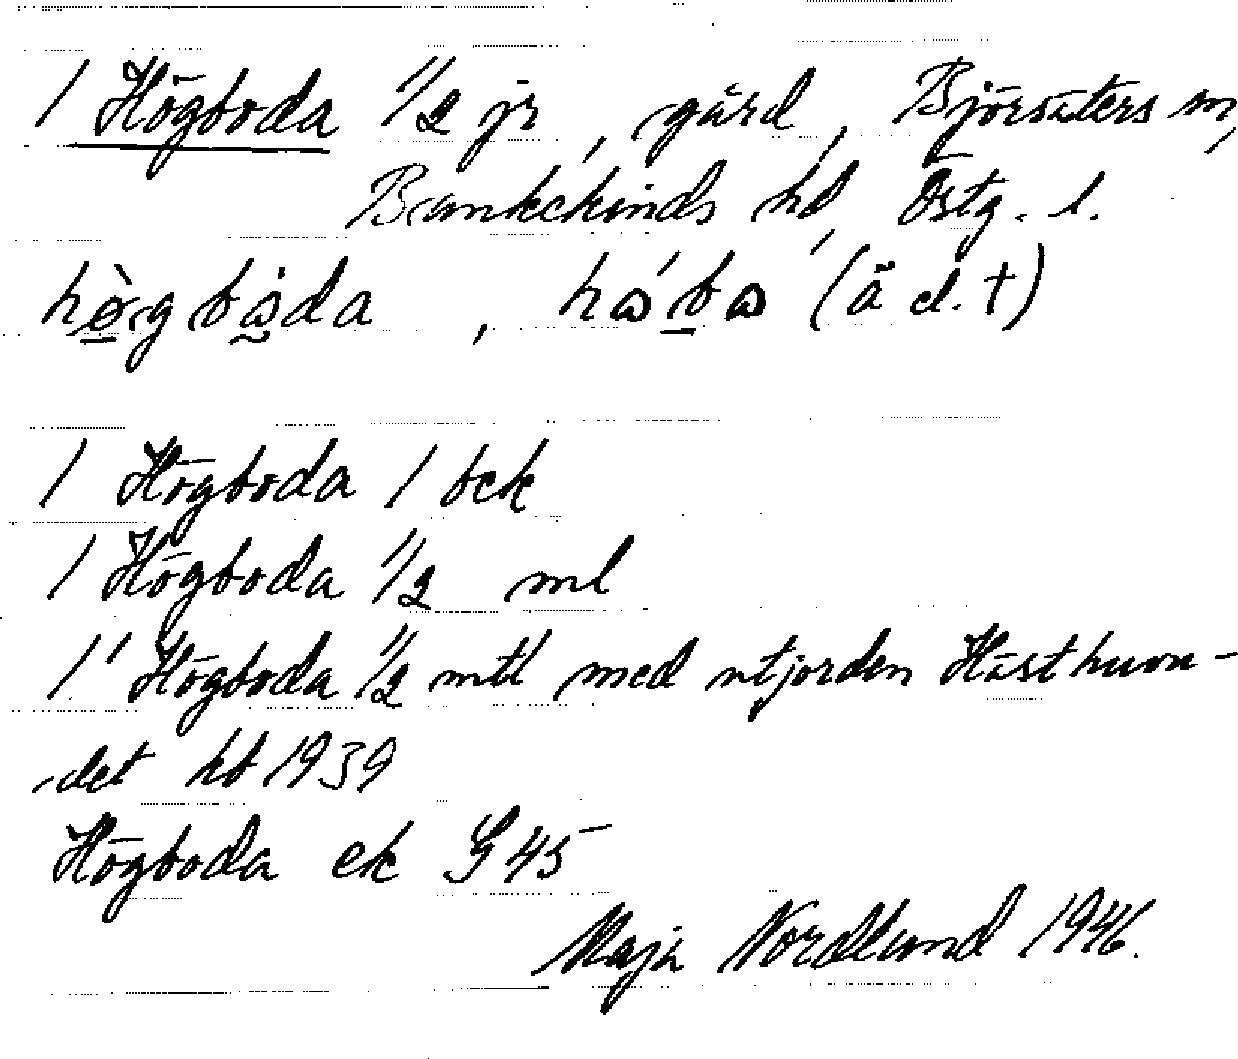 1 Högboda 1/2 jr, gård, Björsäters sn,
Bankekinds hd, Östg. l.
hø̀gbåda, håbo (ä d. t)
1 Högboda 1 bek
1 Högboda 1/2 ml
1 Högboda 1/2 mtl med utjorden Hästhuvu-
det hb 1939
Högboda ek G 45
Maja Nordlund 1946.